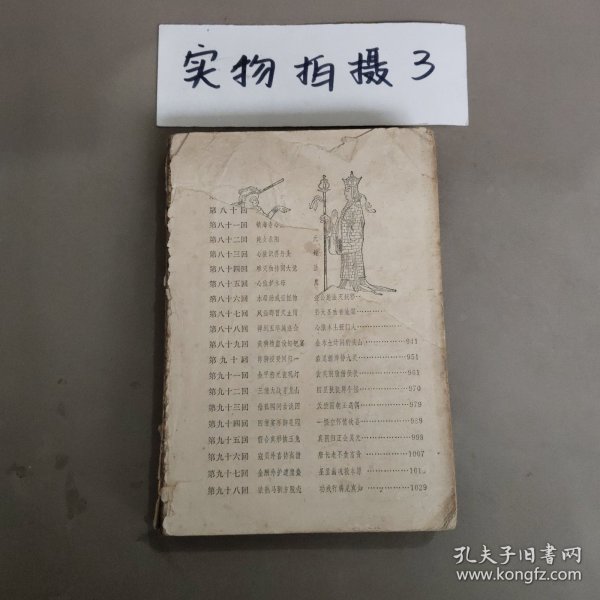 实物拍摄3
第八十回
第八十一回 镇海寺心
第八十二回 姹女求阳
第八十三回 心猿识得丹头
第八十四回 难灭伽持圆大觉
第八十五回 心猿妒木母
第八十六回 木母助威征怪物
第八十七回 凤仙郡冒天止雨
第八十八回 禅到玉华施法会 心猿木土授门人
第八十九回 黄狮精虚设钉钯宴 金木土计闹豹头山 941
第九十回 师狮授受同归一 951
第九十一回 金平府元夜观灯 玄英洞唐僧供状 961
第九十二回 三僧大战青龙山 四星挟捉犀牛怪 970
第九十三回 给孤园问古谈因 天竺国朝王遇偶 979
第九十四回 四僧宴乐御花园 一怪空怀情欲喜 989
第九十五回 假合真形擒玉兔 真阴归正会灵元 999
第九十六回 寇员外喜待高僧 唐长老不贪富贵 1007
第九十七回 金酬外护遭魔蛰 圣显幽魂救本原
第九十八回 猿熟马驯方脱壳 功成行满见真如 1029
孔夫子旧书网
www.kongfz.com